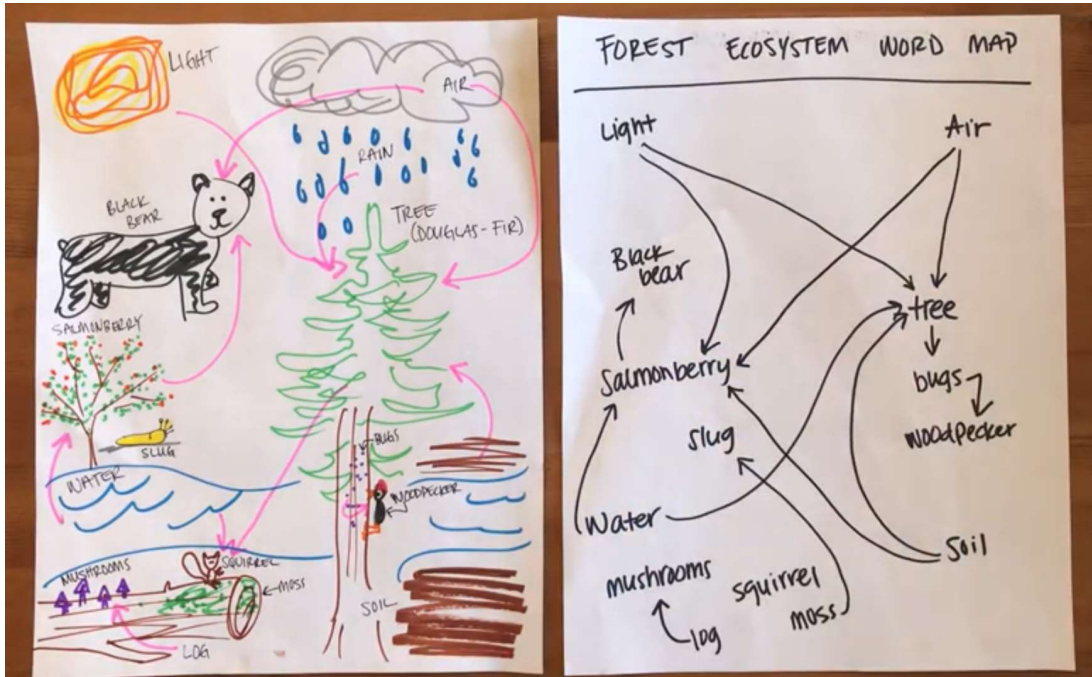 LIGHT
AIR
RAIN
BLACK
BEAR
TREE
(DOUGLAS-FIR)
SALMONBERRY
SLUG
BUGS
WATER
WOODPECKER
MUSHROOMS
SQUIRREL
MOSS
SOIL
LOG
FOREST ECOSYSTEM WORD MAP
Light
Air
Black
bear
tree
Salmonberry
bugs
slug
woodpecker
Water
Soil
mushrooms
squirrel
moss
log